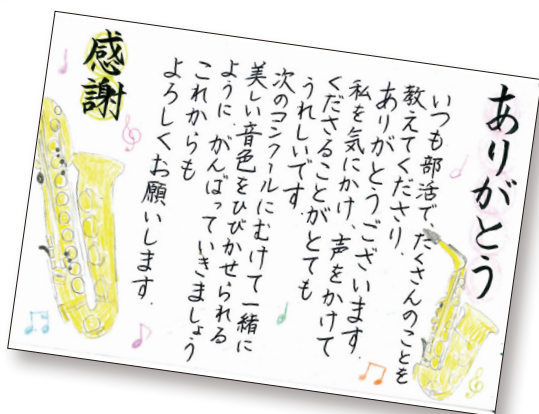 ありがとう
いつも部活で、たくさんのことを
教えてくださり、
ありがとうございます。
私を気にかけ、声をかけて
くださることがとても
うれしいです。
次のコンクールにむけて一緒に
美しい音色をひびかせられる
ように、がんばっていきましょう
これからも
よろしくお願いします。
感謝